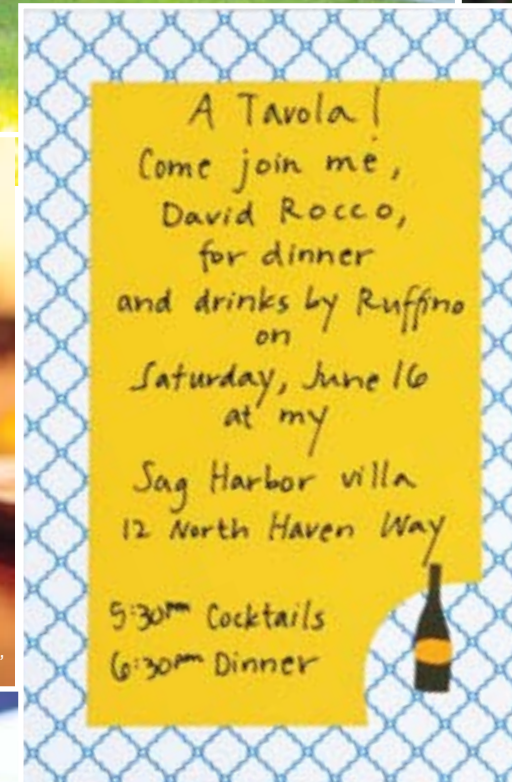 A Tavola!
Come join me,
David Rocco,
for dinner
and drinks by Ruffino
on
Saturday, June 16
at my
Sag Harbor villa
12 North Haven Way
5:30pm Cocktails
6:30pm Dinner